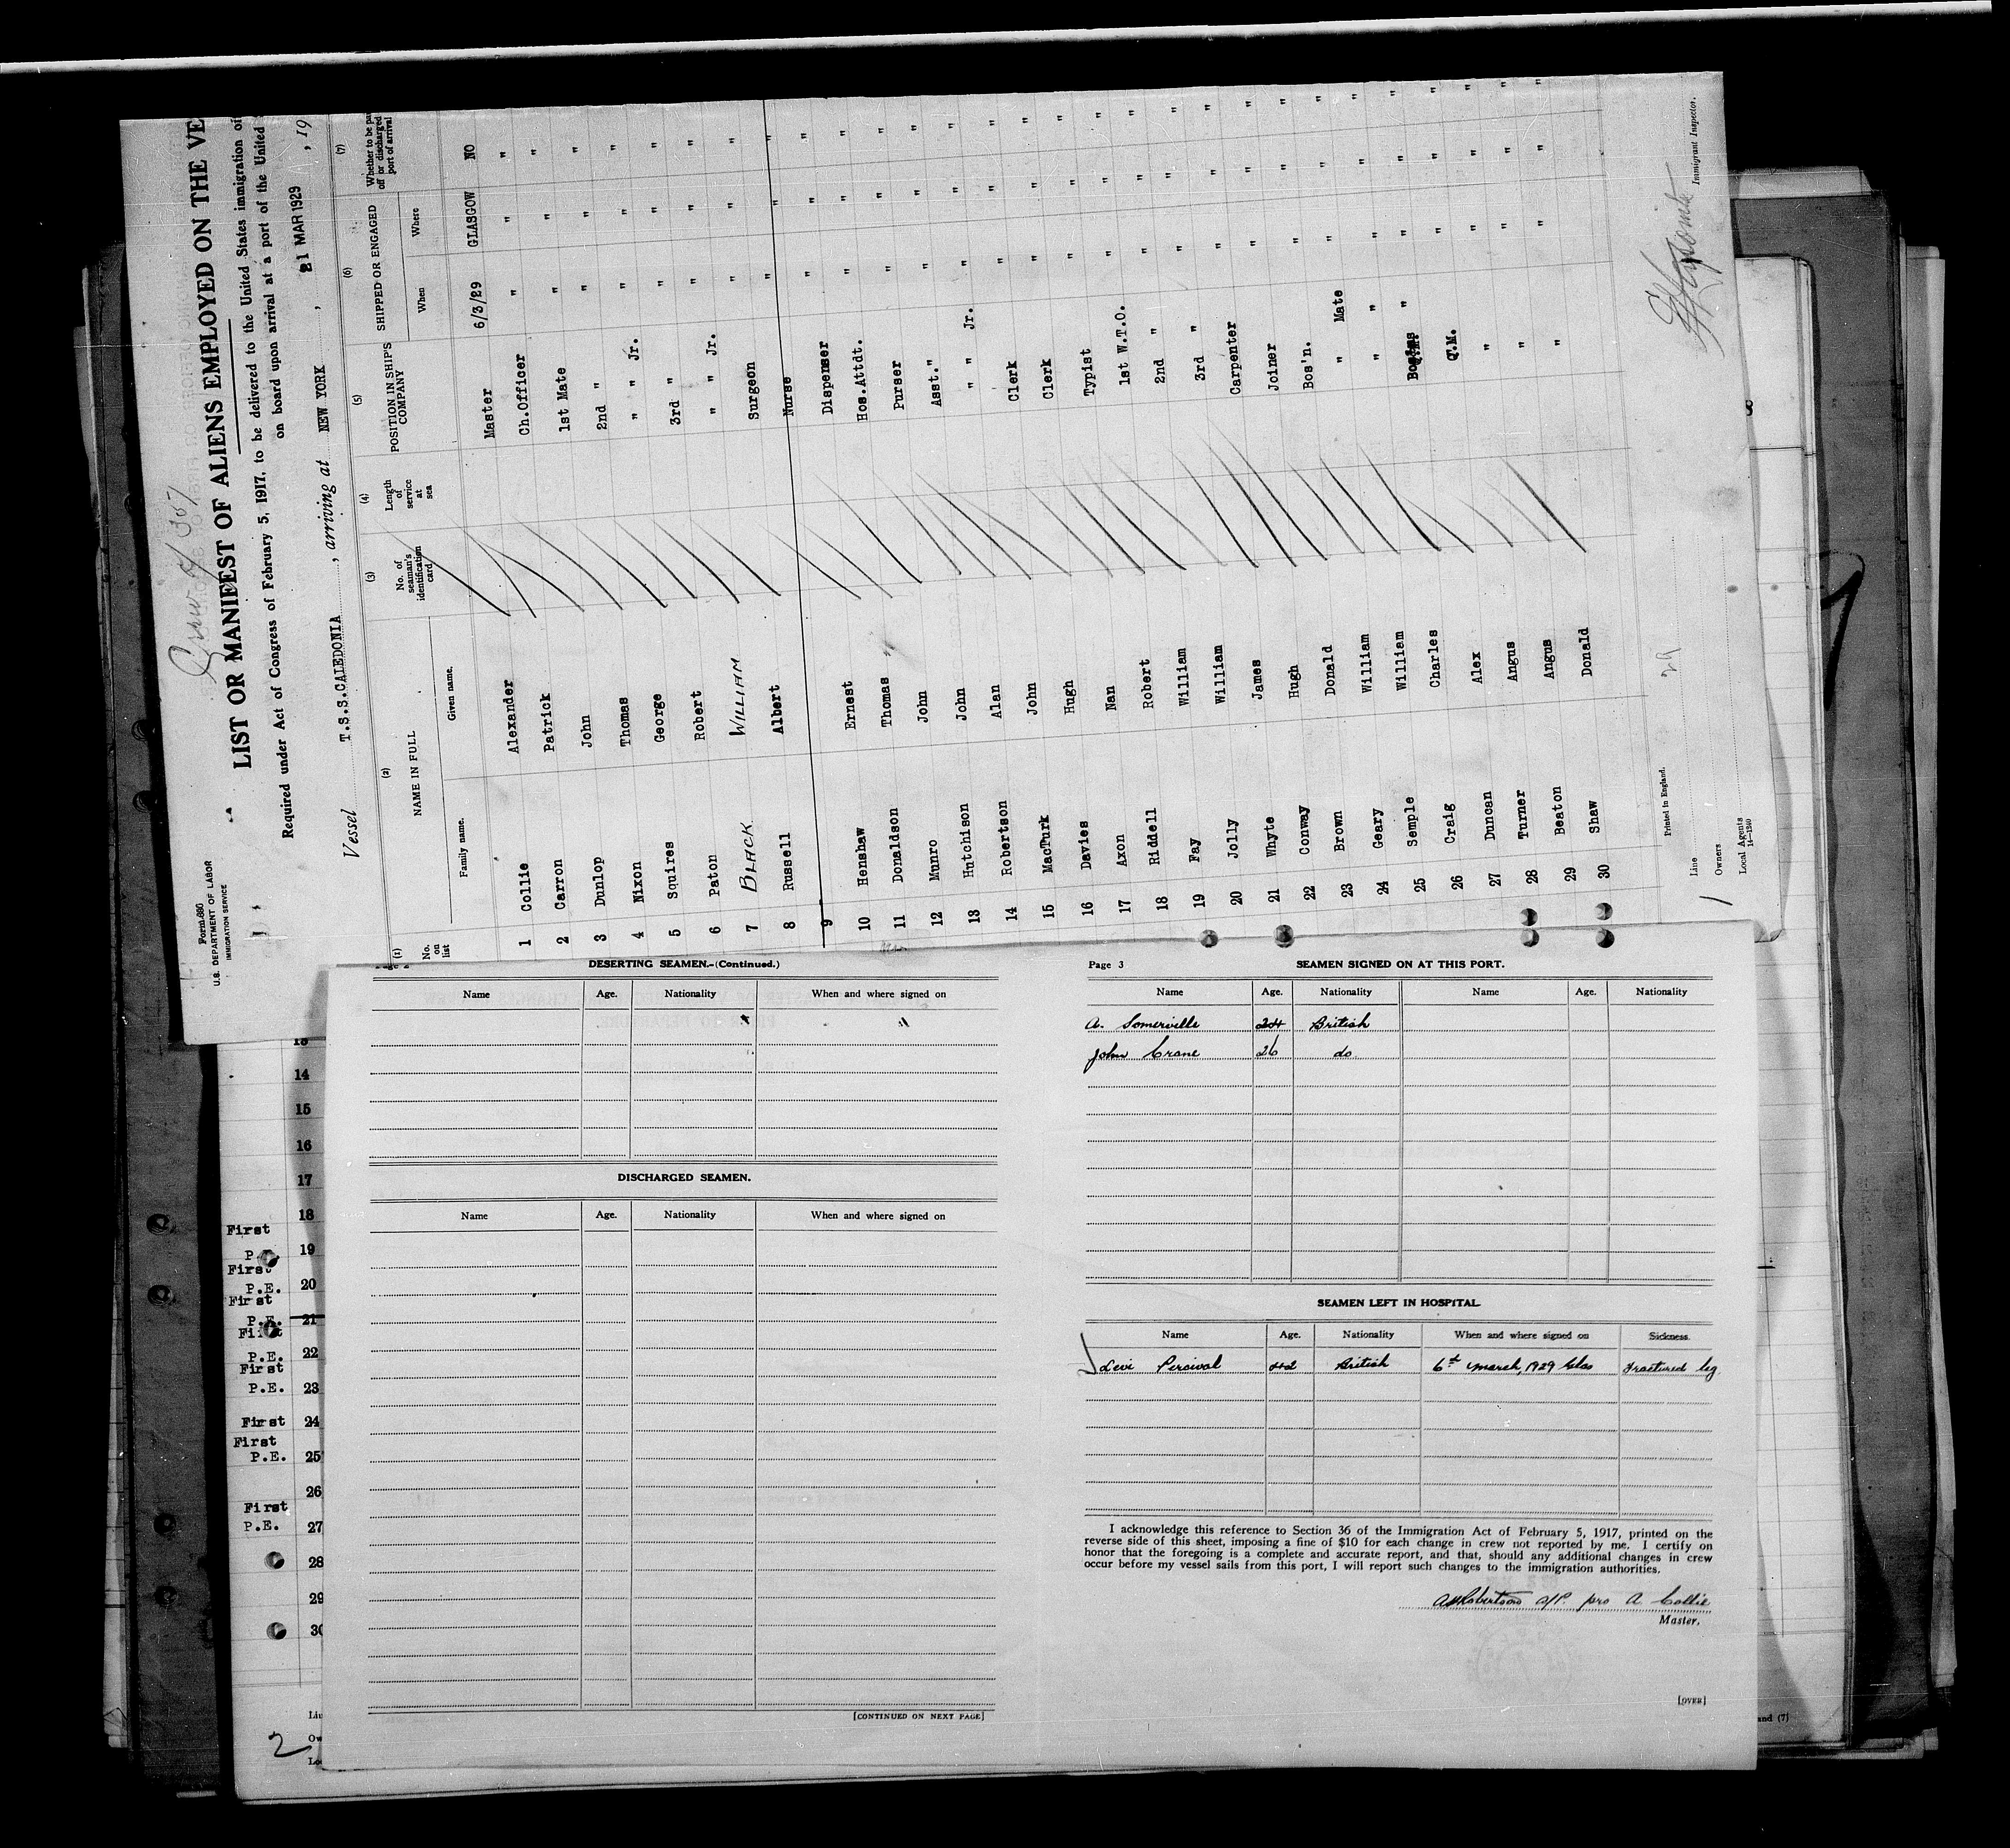 Form 690
U.S. DEPARTMENT OF LABOR
IMMIGRATION SERVICE
LIST OR MANIFEST OF ALIENS EMPLOYED ON THE VE
Required under Act of Congress of February 5, 1917, to be delivered to the United States immigration of
on board upon arrival at a port of the United
Vessel T.S.S.CALEDONIA, arriving at NEW YORK, 21 MAR 1929, 19
(1) (2) (3) (4) (5) (6) (7)
No. on list NAME IN FULL No. of seaman's identification card Length of service at sea POSITION IN SHIP'S COMPANY SHIPPED OR ENGAGED Whether to be pa off or discharged port of arrival
Family name. Given name. When Where
1 Collie Alexander Master 6/3/29 GLASGOW NO
2 Carron Patrick Ch.Officer " " "
3 Dunlop John 1st Mate " " "
4 Nixon Thomas 2nd " " " "
5 Squires George " " Jr. " " "
6 Paton Robert 3rd " " " "
7 BLACK WILLIAM " " Jr. " " "
8 Russell Albert Surgeon " " "
9 Nurse " " "
10 Henshaw Ernest Dispenser " " "
11 Donaldson Thomas Hos.Attdt. " " "
12 Munro John Purser " " "
13 Hutchison John Asst." " " "
14 Robertson Alan " " Jr. " " "
15 MacTurk John Clerk " " "
16 Davies Hugh Clerk " " "
17 Axon Nan Typist " " "
18 Riddell Robert 1st W.T.O. " " "
19 Fay William 2nd " " " "
20 Jolly William 3rd " " " "
21 Whyte James Carpenter " " "
22 Conway Hugh Joiner " " "
23 Brown Donald Bos'n. " " "
24 Geary William " Mate " " "
25 Semple William " " " " "
26 Craig Charles " " " "
27 Duncan Alex Q.M. " " "
28 Turner Angus " " " "
29 Beaton Angus " " " "
30 Shaw Donald " " " "
Printed in England.
Line
Owners
Local Agents
14—1240
Immigrant Inspector.
1
DESERTING SEAMEN.—(Continued.)
Name Age. Nationality When and where signed on
DISCHARGED SEAMEN.
Name Age. Nationality When and where signed on
[CONTINUED ON NEXT PAGE]
Page 3 SEAMEN SIGNED ON AT THIS PORT.
Name Age. Nationality Name Age. Nationality
A. Somerville 24 British
John Crane 26 do
SEAMEN LEFT IN HOSPITAL
Name Age. Nationality When and where signed on Sickness.
Levi Percival 42 British 6th March, 1929 Glas Fractured leg
I acknowledge this reference to Section 36 of the Immigration Act of February 5, 1917, printed on the
reverse side of this sheet, imposing a fine of $10 for each change in crew not reported by me. I certify on
honor that the foregoing is a complete and accurate report, and that, should any additional changes in crew
occur before my vessel sails from this port, I will report such changes to the immigration authorities.
A Robertson A/P. pro A Collie
Master.
[OVER]
13
14
15
16
17
First 18
P.E. 19
First
P.E. 20
First
P.E. 21
First
P.E. 22
First
P.E. 23
First 24
First
P.E. 25
26
First
P.E. 27
28
29
30
2
and (7)